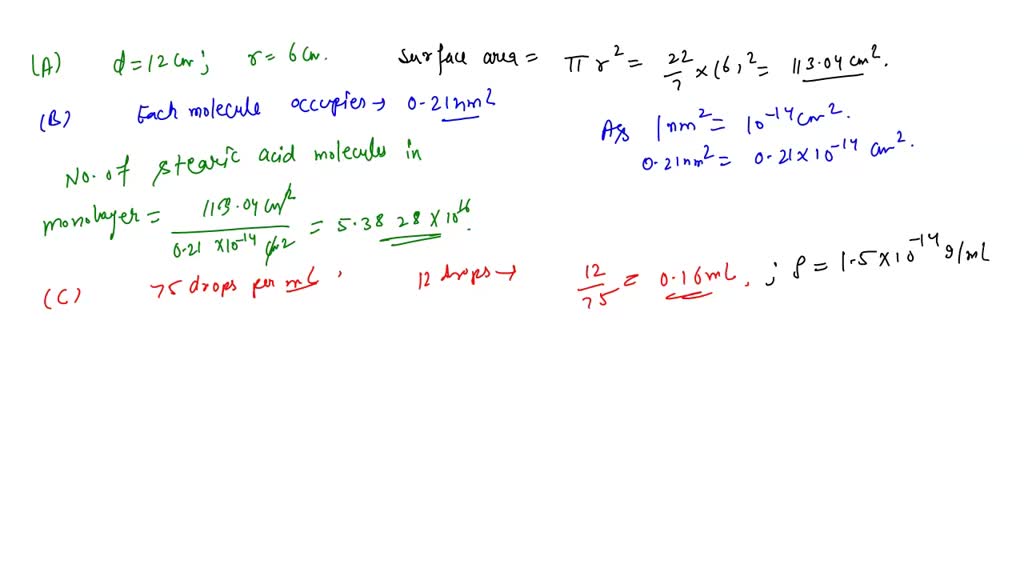 (A) d=12 cm; r= 6 cm. Surface area = πr² = 22/7 × (6)² = 113.04 cm².
(B) Each molecule occupies → 0.21 nm²
As 1 nm² = 10⁻¹⁴ cm².
0.21 nm² = 0.21×10⁻¹⁴ cm².
No. of stearic acid molecules in
monolayer = 113.04 cm² / 0.21 ×10⁻¹⁴ cm² = 5.3828×10¹⁶.
(C) 75 drops per mL, 12 drops → 12/75 = 0.16 mL, ; ρ = 1.5×10⁻¹⁴ g/mL